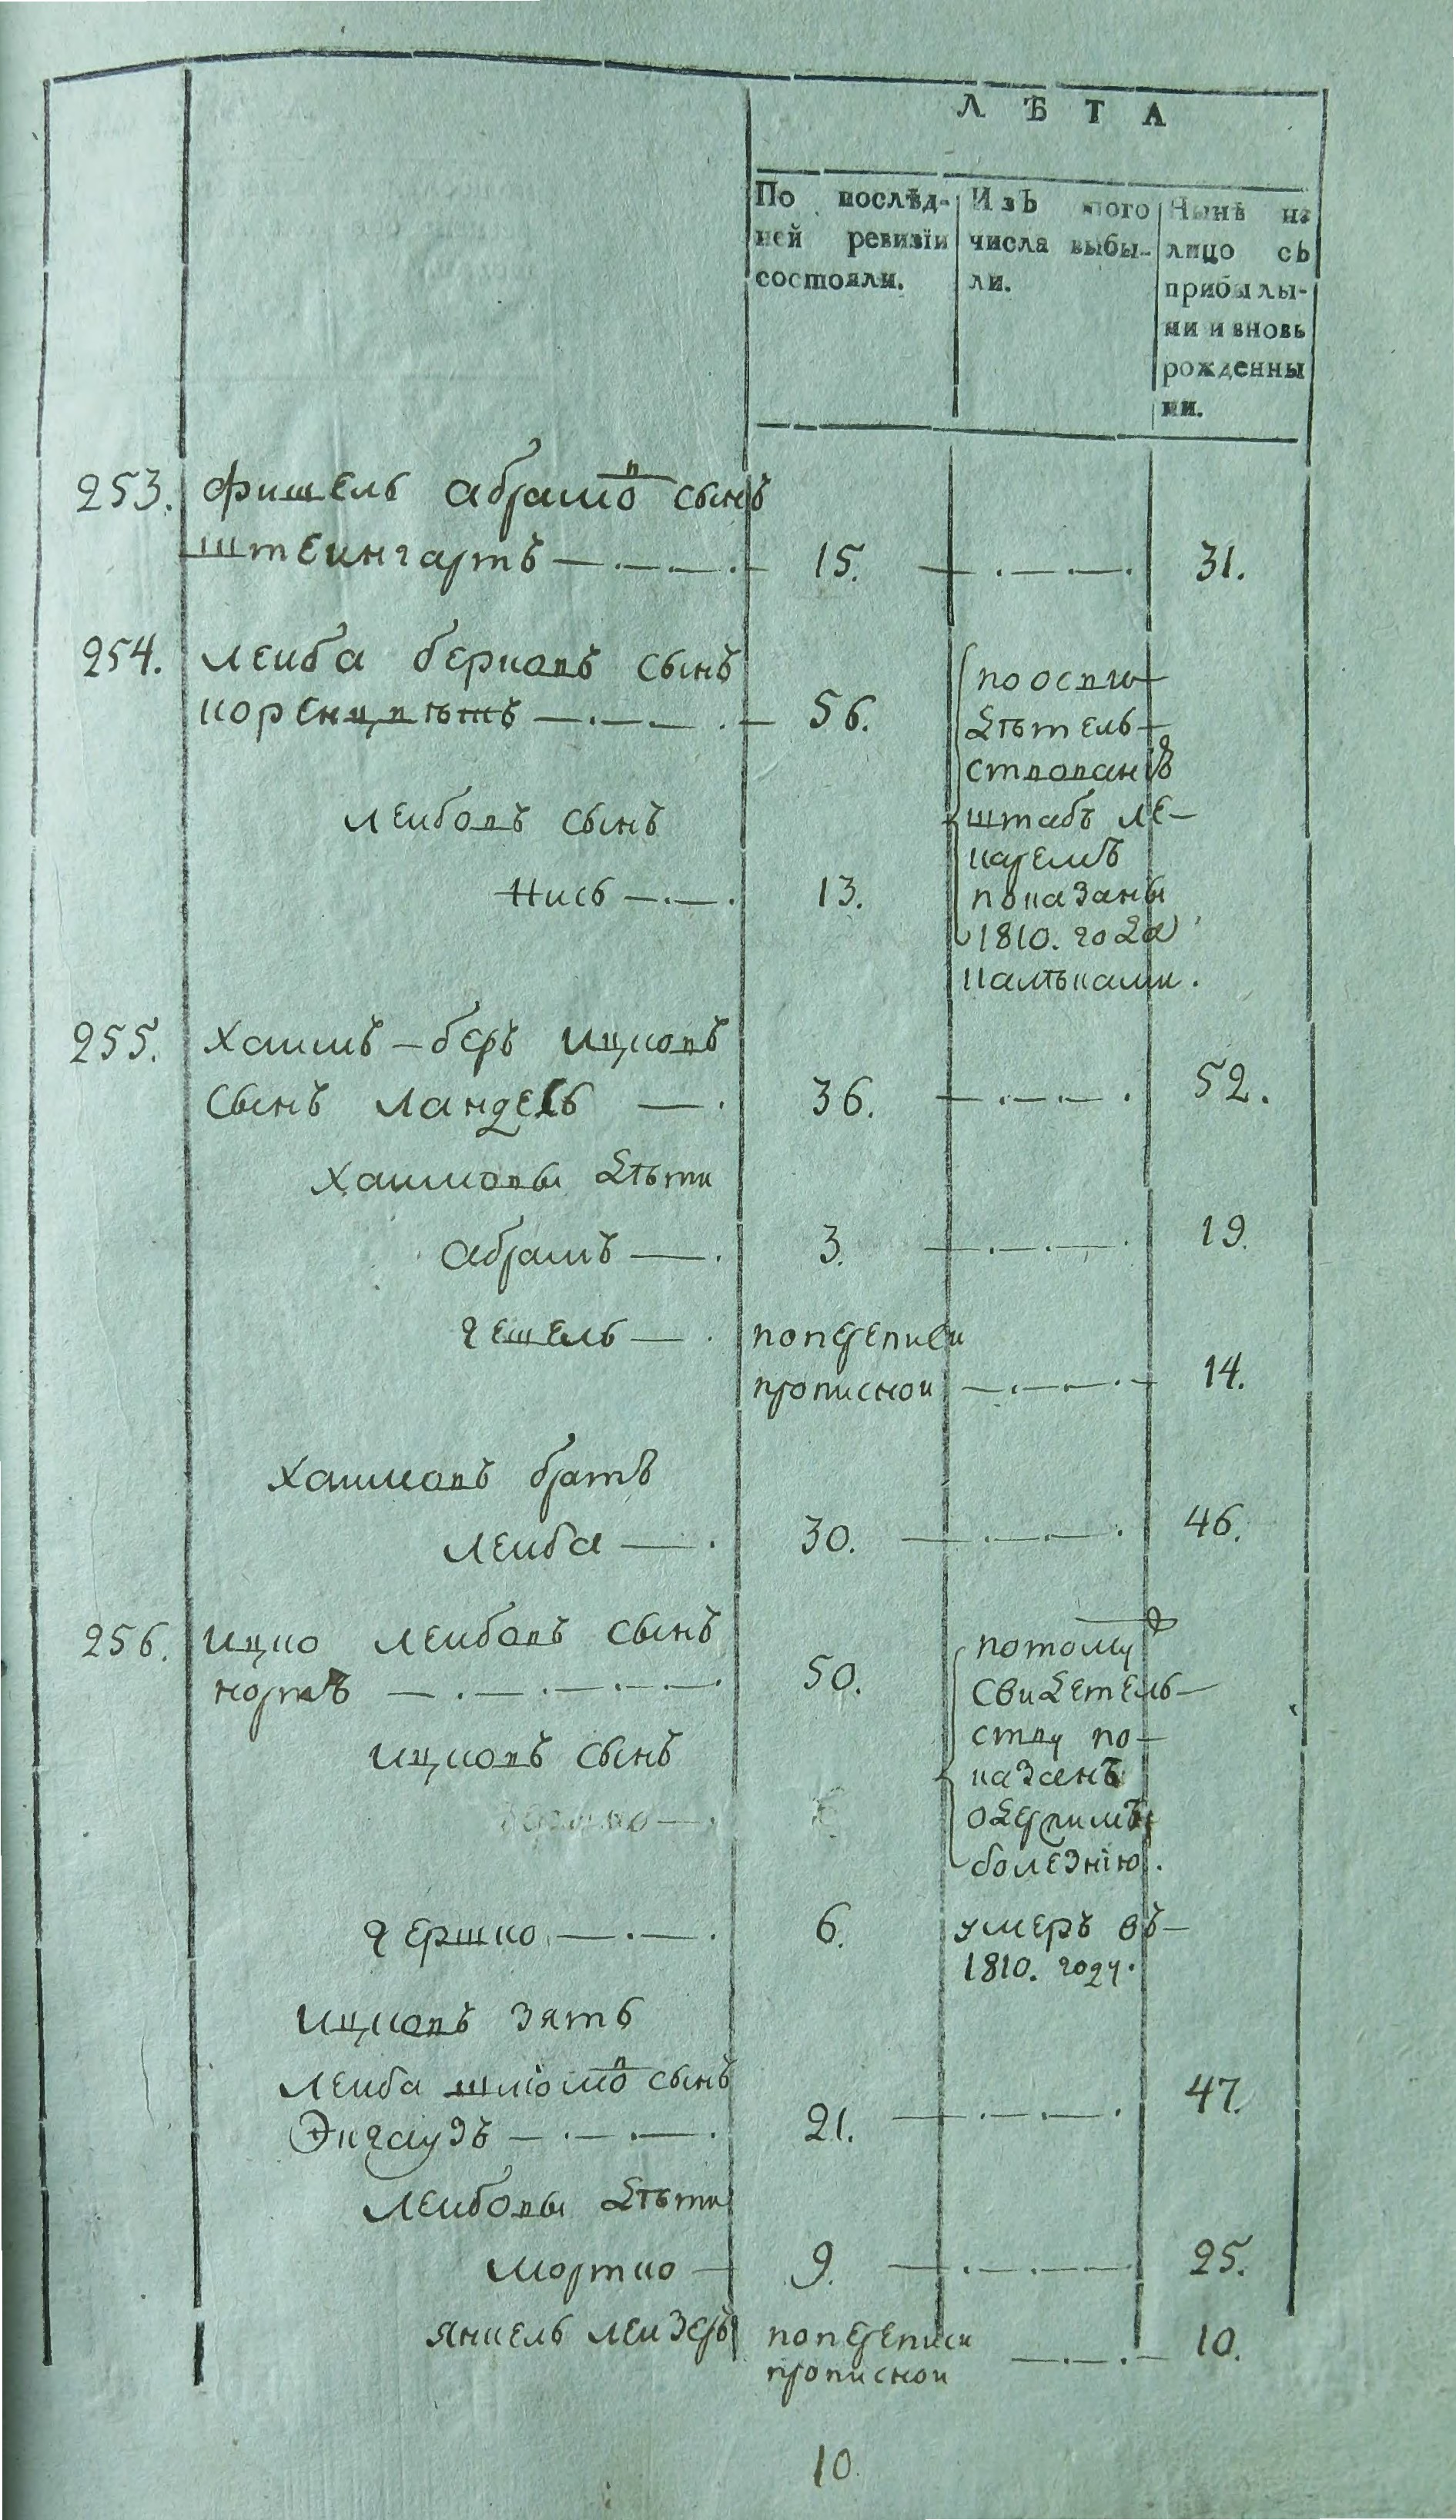 ЛѢТА
По послѣд-
ней ревизіи
состояли.
Изъ того
числа выбы-
ли.
Нынѣ на
лицо съ
прибылы-
ми и вновь
рожденны
ми.
253. Фишель Абрамовъ сынъ
Штеингартъ — . — . — . 15. — . — . — . 31.
254. Леиба берковъ сынъ
коренцвѣтъ — . — . — 56.
Леибовъ сынъ
Нись — . — . 13.
по осви-
дѣтель-
ствованіѣ
штабъ ле-
каремъ
показаны
1810. года
калѣками.
255. Хаимъ-беръ ицковъ
сынъ Ландесъ — . 36. — . — . — . 52.
Хаимовы дѣти
Абрамъ — . 3. — . — . — . 19.
гешель — . по переписи
прописнои — . — . — 14.
Хаимовъ братъ
Леиба — . 30. — . — . — . 46.
256. ицко Леибовъ сынъ
кортъ — . — . — . — . — . 50.
потому
свидетель-
ству по-
казанъ
одержимъ
болезнію.
ицковъ сынъ
гершко — . — . 6. умеръ въ
1810. году.
ицковъ зять
Леиба шліомовъ сынъ
Экгаузъ — . — . — . 21. — . — . — . 47.
Леибовы дѣти
мортко — 9. — . — . — 25.
янкель Леизеръ по переписи
прописнои — . — . — 10.
10